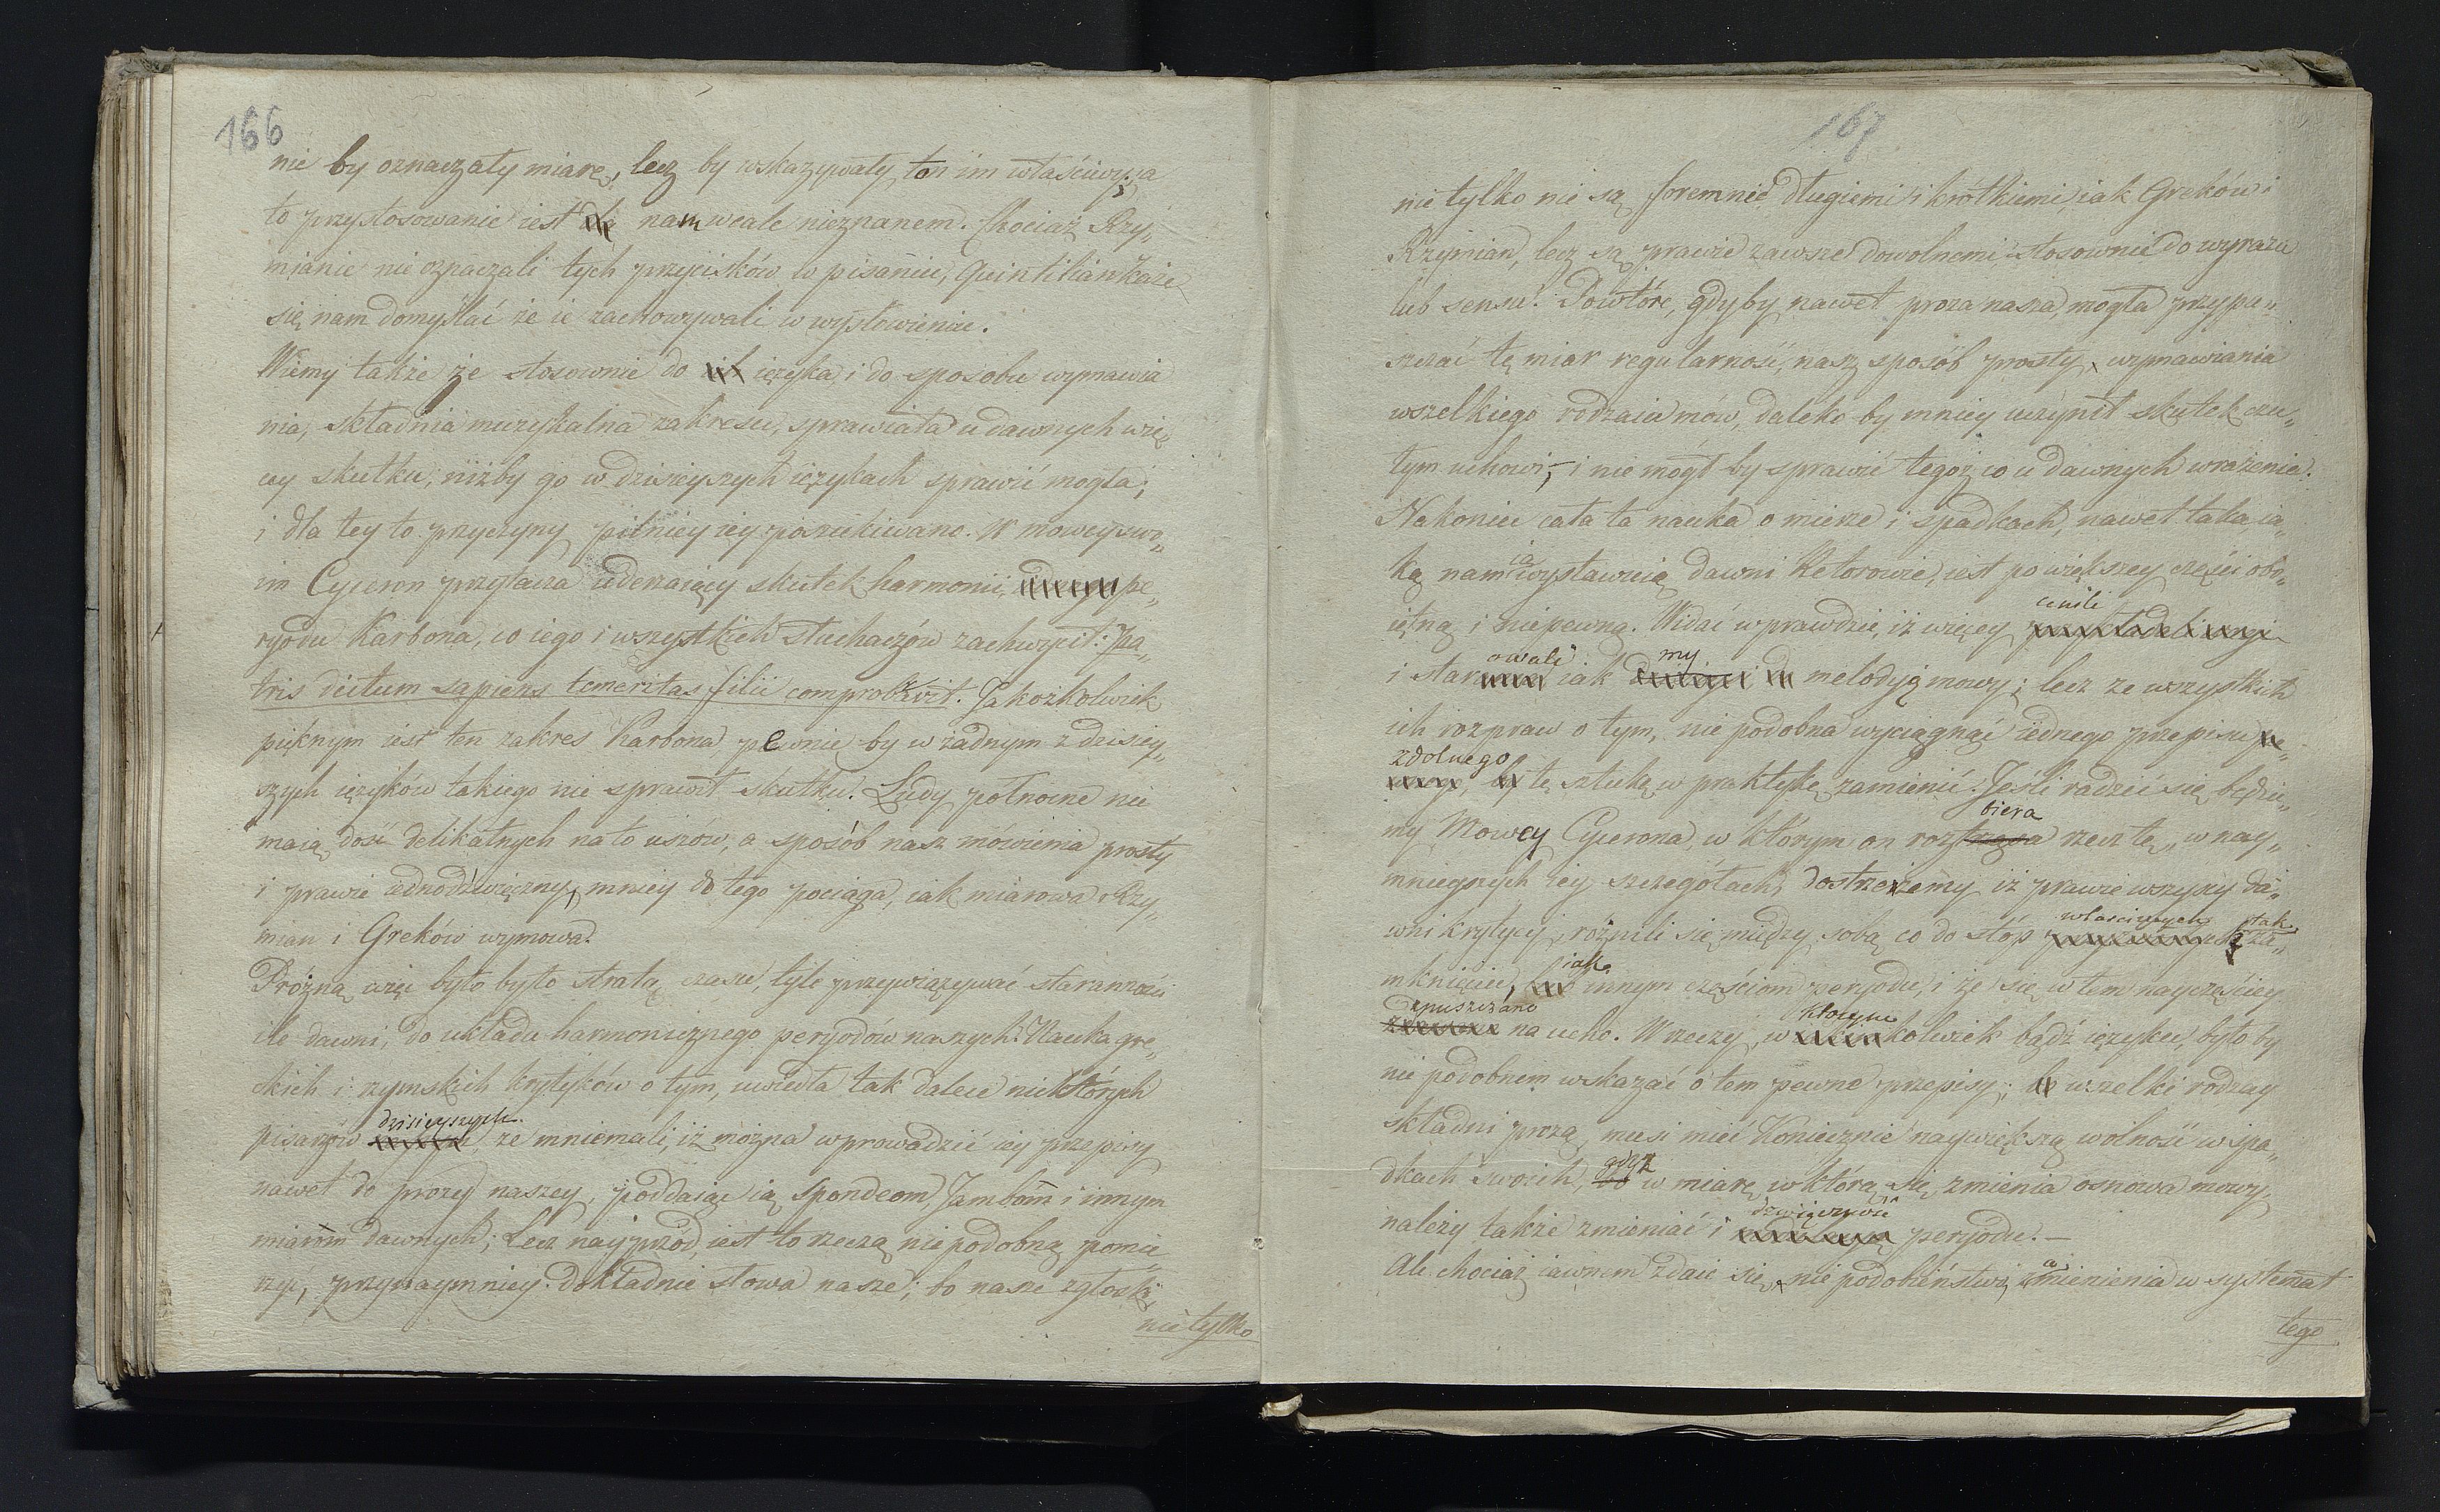 166
nie by oznaczały miarę, lecz by wskazywały ton im właściwy; a
to przystosowanie iest nam wcale nieznanem. Chociaż Rzy„
mianie nie oznaczali tych przycisków w pisaniu, Quintilian każe
się nam domyślać że ie zachowywali w wysłowieniu.
Wiemy także że stosownie do ich ięzyka, i do sposobu wymawia
nia, składnia muzykalna zakresu, sprawiała u dawnych wię„
cey skutku, niżby go w dzisieyszych ięzykach sprawić mogła;
i dla tey to przyczyny pilniey iey poszukiwano. W mowcy swo„
im Cyceron przytacza uderzaiący skutek harmonii, pe„
ryodu Karbona, co iego i wszystkich słuchaczów zachwycił: Pa„
tris dictum sapiens temeritas filii comprobavit. Jakożkolwiek
pięknym iest ten zakres Karbona, pewnie by w żadnym z dzisiey„
szych ięzyków takiego nie sprawił skutku. Ludy północne nie
maią dość delikatnych na to uszów, a sposób nasz mówienia prosty
i prawie iednodźwięczny, mniey do tego pociąga, iak miarowa Rzy„
mian i Greków wymowa.
Próżną więc było było stratą czasu, tyle przywiązywać staranności
ile dawni, do układu harmonicznego peryodów naszych. Nauka gre„
ckich i rzymskich krytyków o tym, uwiedła tak dalece niektórych
dzisieyszych
pisarzów że mniemali, iż można wprowadzić iey przepisy
nawet do prozy naszey, poddaiąc ią Spondeom, Jambom i innym
miarom dawnych; Lecz nayprzód, iest to rzeczą nie podobną pomie
rzyć, przynaymniey dokładnie słowa nasze; bo nasze zgłoski
nie tylko
167
nie tylko nie są foremnie długiemi i krótkiemi, iak Greków i
Rzymian, lecz są prawie zawsze dowolnemi, stosownie do wyrazu
lub sensu. Powtóre, gdyby nawet proza nasza, mogła przypu„
szczać tę miar regularność, nasz sposób prosty, wymawiania
wszelkiego rodzaiu mów, daleko by mniey uczynił skutek czu„
łym uchowi; i nie mógł by sprawić tegoż, co u dawnych wrażenia.
Nakoniec cała ta nauka o mierze i spadkach, nawet taka, ia„
ią
ką nam wystawuią dawni Retorowie, iest po większey części obo„
cenili
iętną i niepewną. Widać wprawdzie, iż więcey
owali my
i star iak melodyą mowy; lecz ze wszystkich
ich rozpraw o tym, nie podobna wyciągnąć iednego przepisu
zdolnego
tę sztukę w praktykę zamienić. Jeśli radzić się będzie„
biera
my Mowcy Cycerona, w którym on roztrząsa rzecz tę, w nay„
mnieyszych iey szczegółach, dostrzeżemy iż prawie wszyscy da„
właściwych tak
wni krytycy, różnili się między sobą co do stóp za„
iako
mknięciu, innym częściom peryodu, i że się w tem nayczęściey
spuszczano którym
na ucho. W rzeczy, w kolwiek bądź ięzyku, było by
nie podobnem wskazać o tem pewne przepisy; wszelki rodzay
składni prozą, musi mieć koniecznie naywiększą wolność w spa„
gdyż
dkach swoich, bo w miarę, w którą się zmienia osnowa mowy,
dźwięczność
należy także zmieniać i peryodu. —
a
Ale chociaż iawnem zdaie się nie podobieństwo, zmienienia w systemat
tego